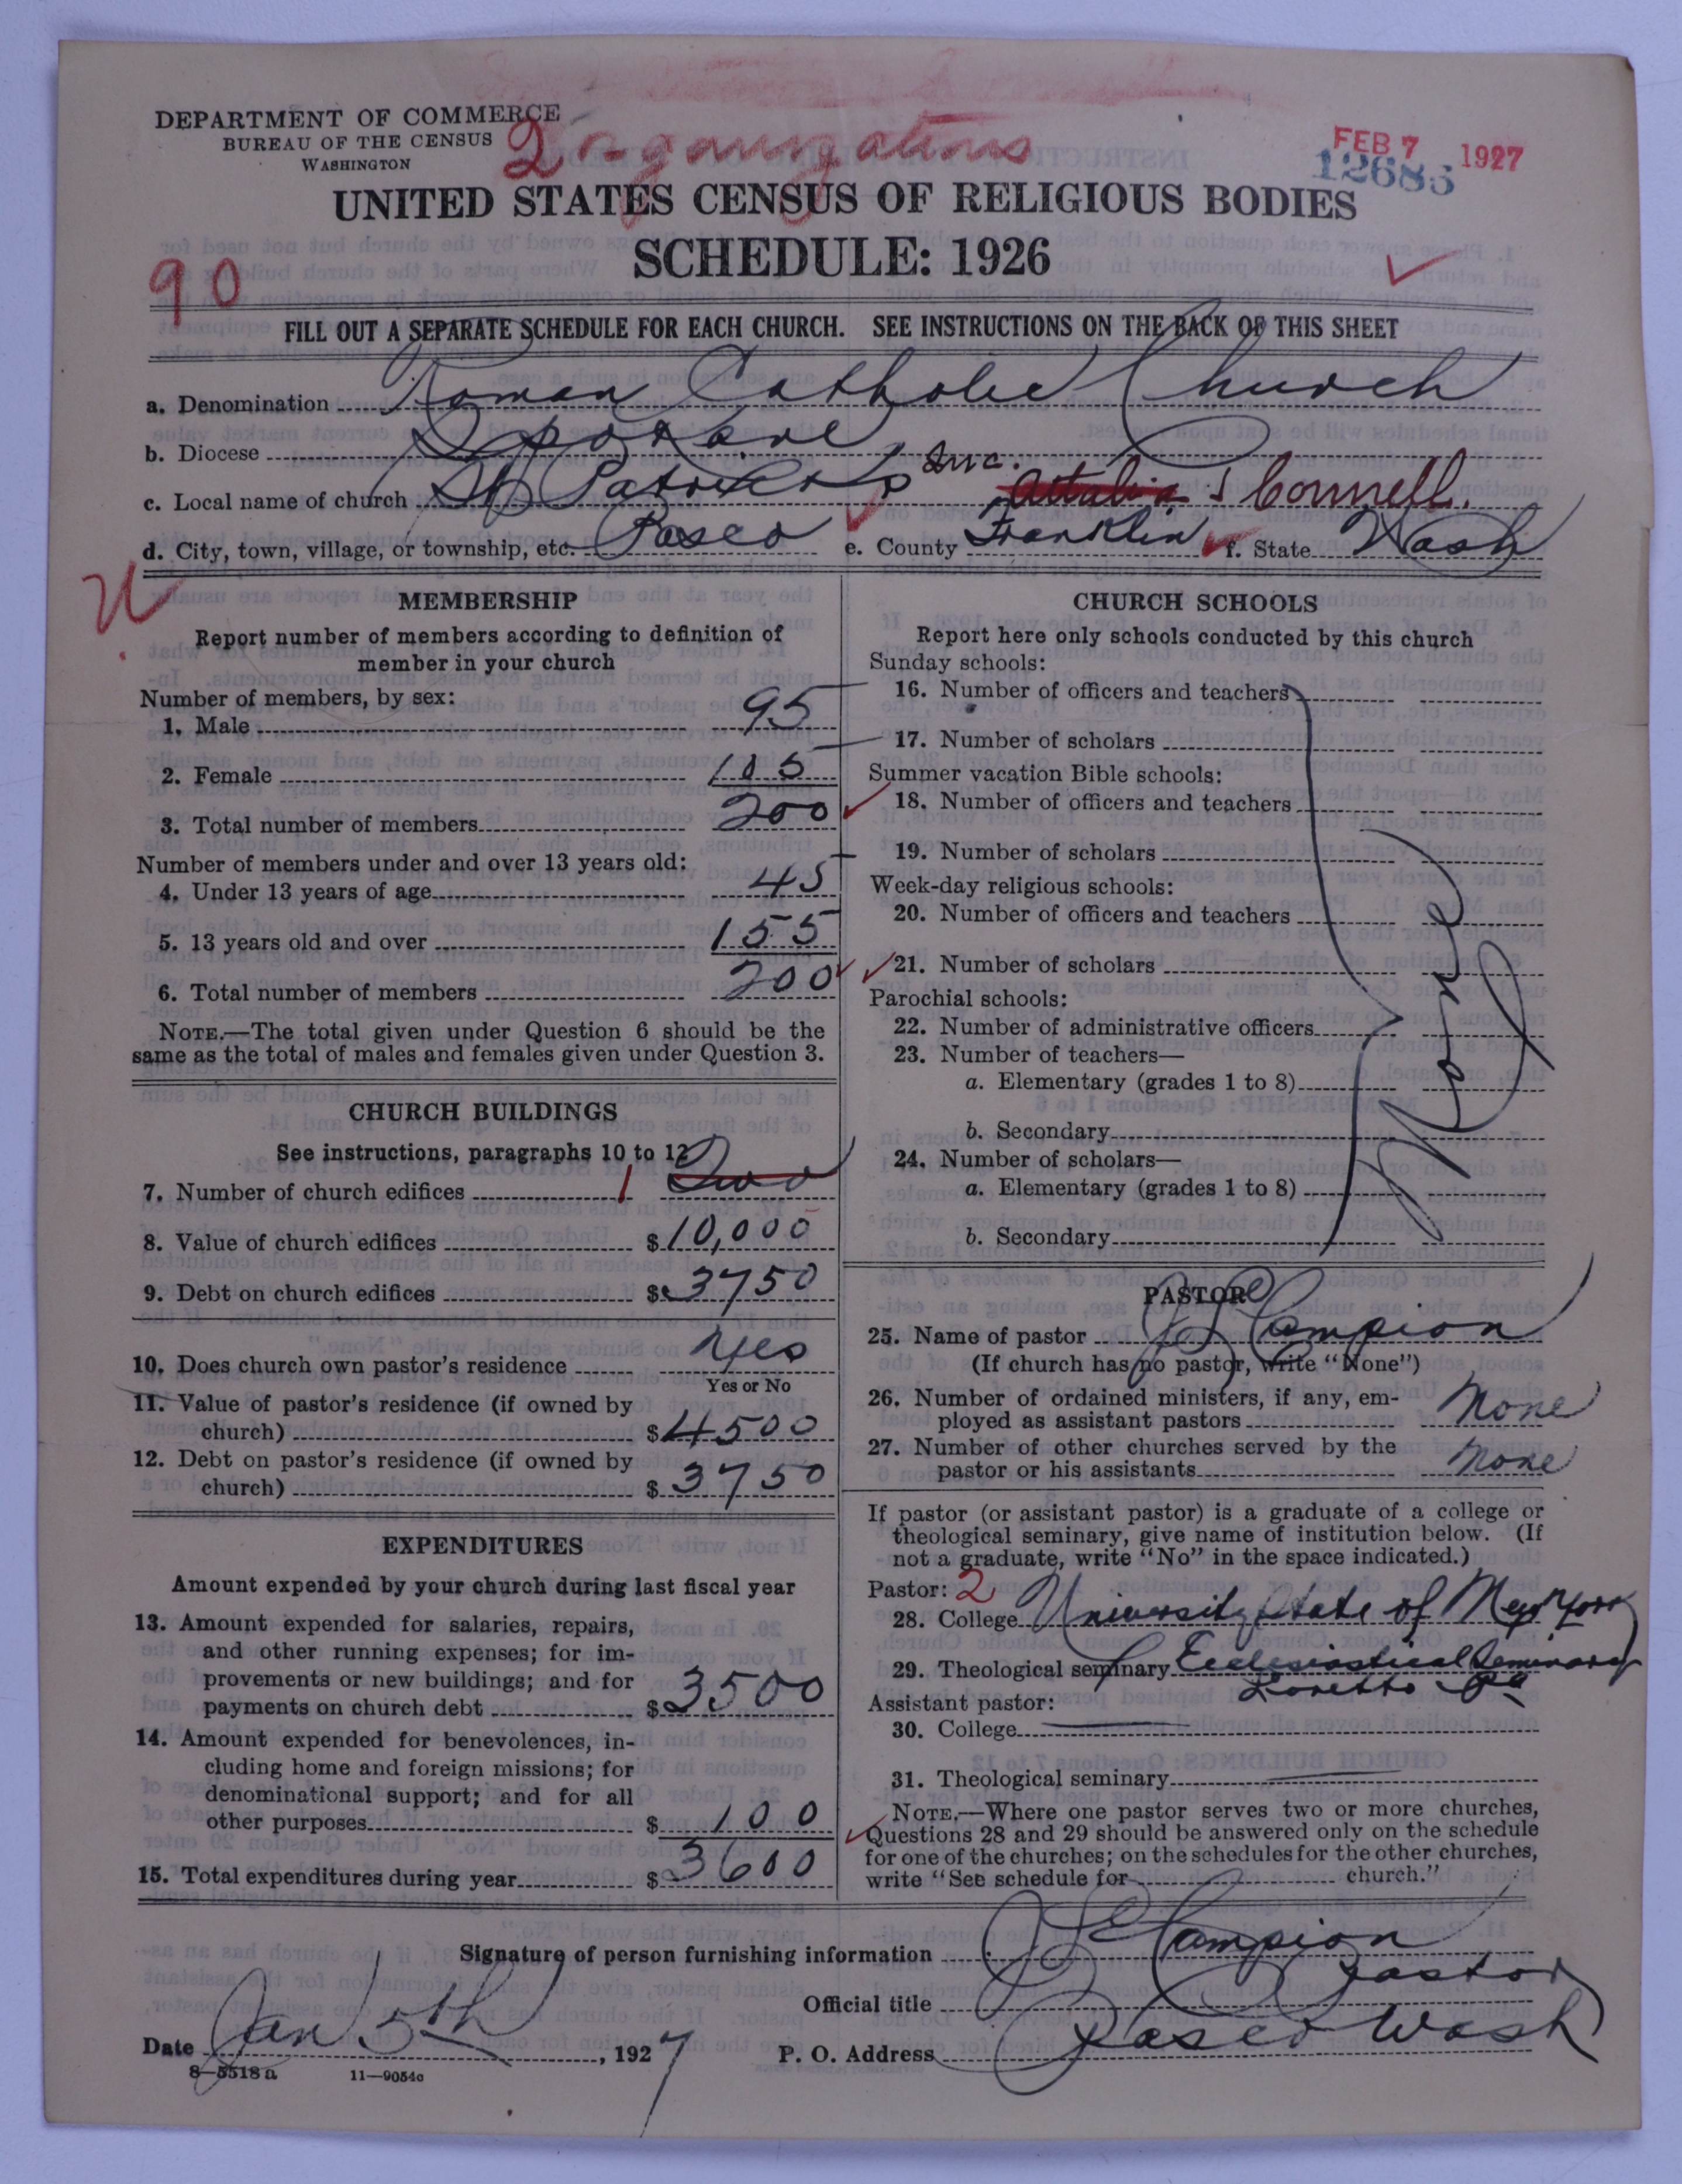 DEPARTMENT OF COMMERCE
BUREAU OF THE CENSUS
WASHINGTON
2 organizations
FEB 7 1927
UNITED STATES CENSUS OF RELIGIOUS BODIES
SCHEDULE: 1926
90
FILL OUT A SEPARATE SCHEDULE FOR EACH CHURCH. SEE INSTRUCTIONS ON THE BACK OF THIS SHEET
a. Denomination Roman Catholic Church
b. Diocese Spokane
c. Local name of church St Patricks Inc. & Connell.
d. City, town, village, or township, etc. Pasco e. County Franklin f. State Wash
MEMBERSHIP
Report number of members according to definition of
member in your church
Number of members, by sex:
1. Male 95
2. Female 105
3. Total number of members 200
Number of members under and over 13 years old:
4. Under 13 years of age 45
5. 13 years old and over 155
6. Total number of members 200
NOTE.—The total given under Question 6 should be the
same as the total of males and females given under Question 3.
CHURCH BUILDINGS
See instructions, paragraphs 10 to 12
7. Number of church edifices 1 Two
8. Value of church edifices $10,000
9. Debt on church edifices $3750
10. Does church own pastor's residence Yes
Yes or No
11. Value of pastor's residence (if owned by
church) $4500
12. Debt on pastor's residence (if owned by
church) $3750
EXPENDITURES
Amount expended by your church during last fiscal year
13. Amount expended for salaries, repairs,
and other running expenses; for im-
provements or new buildings; and for
payments on church debt $3500
14. Amount expended for benevolences, in-
cluding home and foreign missions; for
denominational support; and for all
other purposes $100
15. Total expenditures during year $3600
CHURCH SCHOOLS
Report here only schools conducted by this church
Sunday schools:
16. Number of officers and teachers
17. Number of scholars
Summer vacation Bible schools:
18. Number of officers and teachers
19. Number of scholars
Week-day religious schools:
20. Number of officers and teachers
21. Number of scholars
Parochial schools:
22. Number of administrative officers
23. Number of teachers—
a. Elementary (grades 1 to 8)
b. Secondary
24. Number of scholars—
a. Elementary (grades 1 to 8)
b. Secondary
None
PASTOR
25. Name of pastor Campion
(If church has no pastor, write "None")
26. Number of ordained ministers, if any, em-
ployed as assistant pastors None
27. Number of other churches served by the
pastor or his assistants None
If pastor (or assistant pastor) is a graduate of a college or
theological seminary, give name of institution below. (If
not a graduate, write "No" in the space indicated.)
Pastor: 2
28. College University State of New York
29. Theological seminary Ecclesiastical Seminary
Loretto Pa
Assistant pastor:
30. College
31. Theological seminary
NOTE.—Where one pastor serves two or more churches,
Questions 28 and 29 should be answered only on the schedule
for one of the churches; on the schedules for the other churches,
write "See schedule for church."
Signature of person furnishing information Campion
Official title Pastor
Date Jan 5th, 1927 P. O. Address Pasco Wash
8—5518a 11—9054c